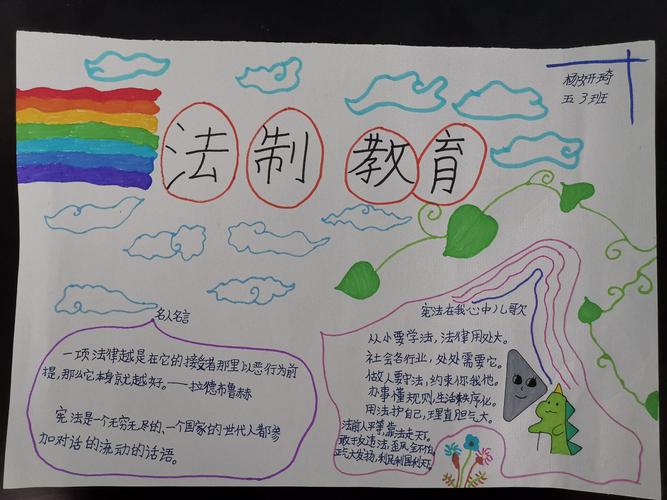 法制教育
杨妍琦
五3班
名人名言
一项法律越是在它的接受者那里以恶行为前
提,那么它本身就越好。——拉德布鲁赫
宪法是一个无穷无尽的、一个国家的世代人都参
加对话的流动的话语。
宪法在我心中儿歌
从小要学法,法律用处大。
社会各行业,处处需要它。
做人要守法,约束你我他。
办事懂规则,生活秩序化。
用法护自己,理直胆气大。
法前人平等,靠法走天下。
敢于反违法,歪风全不怕。
正气大发扬,利民利国利天下。